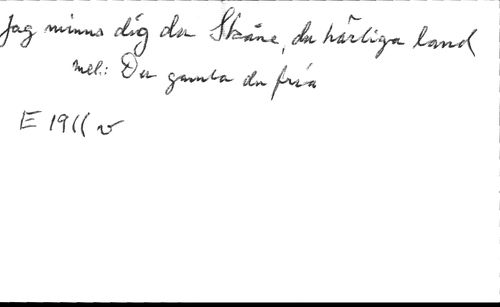 Jag minns dig du Skåne, du härliga land
mel.: Du gamla du fria
E 1911 v